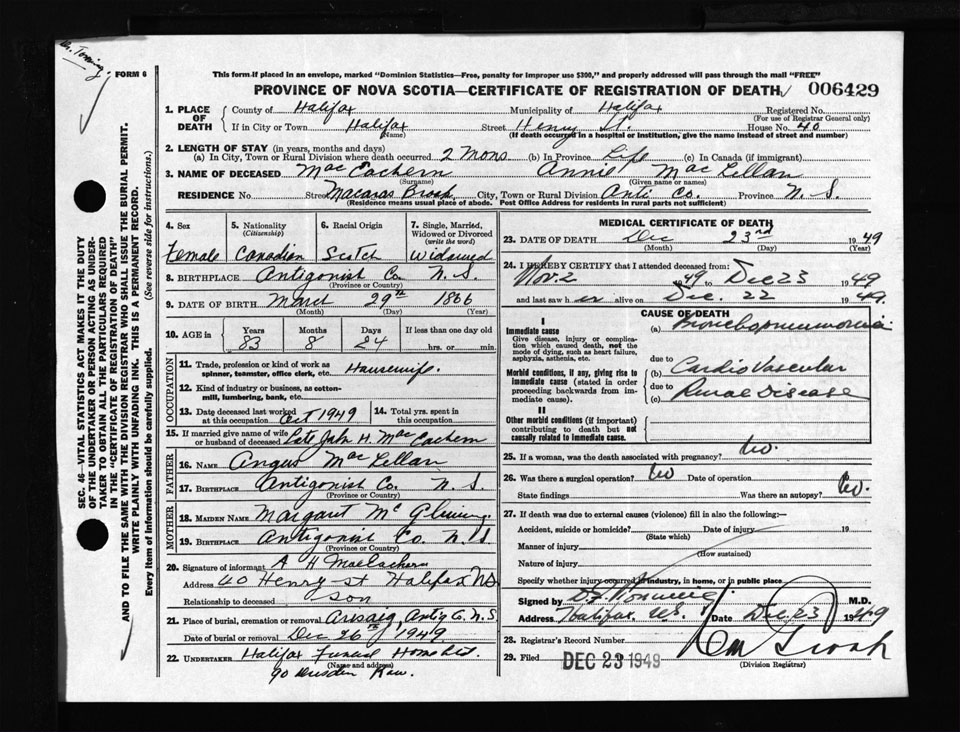 FORM 6
This form if placed in an envelope, marked "Dominion Statistics—Free, penalty for improper use $300," and properly addressed will pass through the mail "FREE"
PROVINCE OF NOVA SCOTIA—CERTIFICATE OF REGISTRATION OF DEATH 006429
1. PLACE OF DEATH County of Halifax Municipality of Halifax Registered No.
(For use of Registrar General only)
If in City or Town Halifax Street Henry St. House No. 40
(Name) (If death occurred in a hospital or institution, give the name instead of street and number)
2. LENGTH OF STAY (in years, months and days)
(a) In City, Town or Rural Division where death occurred 2 Mons. (b) In Province Life (c) In Canada (if immigrant)
3. NAME OF DECEASED MacEachern Annie MacLellan
(Surname) (Given name or names)
RESIDENCE No. Street Brook City, Town or Rural Division Anti Co. Province N. S.
(Residence means usual place of abode. Post Office Address for residents in rural parts not sufficient)
4. Sex 5. Nationality (Citizenship) 6. Racial Origin 7. Single, Married, Widowed or Divorced (write the word)
Female Canadian Scotch Widowed
8. BIRTHPLACE Antigonish Co. N. S.
(Province or Country)
9. DATE OF BIRTH March 29th 1866
(Month) (Day) (Year)
10. AGE in Years Months Days If less than one day old
83 8 24 hrs. or min.
OCCUPATION
11. Trade, profession or kind of work as spinner, teamster, office clerk, etc. Housewife.
12. Kind of industry or business, as cotton-mill, lumbering, bank, etc.
13. Date deceased last worked at this occupation Oct 1949 14. Total yrs. spent in this occupation
15. If married give name of wife or husband of deceased Late John H. MacEachern
FATHER
16. NAME Angus MacLellan
17. BIRTHPLACE Antigonish Co. N. S.
(Province or Country)
MOTHER
18. MAIDEN NAME Margaret Mc
19. BIRTHPLACE Antigonish Co. N. S.
(Province or Country)
20. Signature of informant A H MacEachern
Address 40 Henry st Halifax N.S.
Relationship to deceased son
21. Place of burial, cremation or removal Arisaig Antig Co. N.S.
Date of burial or removal Dec 26th 1949.
22. UNDERTAKER Halifax Funeral Home Ltd.
(Name and address)
90 Dresden Row.
MEDICAL CERTIFICATE OF DEATH
23. DATE OF DEATH Dec 23rd 1949
(Month) (Day)
24. I HEREBY CERTIFY that I attended deceased from:
Nov. 2 1949 to Dec 23 1949
and last saw her alive on Dec. 22 1949.
CAUSE OF DEATH
I
Immediate cause (a) Bronchopneumonia
Give disease, injury or complication which caused death, not the mode of dying, such as heart failure, asphyxia, asthenia, etc.
due to
Morbid conditions, if any, giving rise to immediate cause (stated in order proceeding backwards from immediate cause). (b) Cardio Vascular
due to
(c) Renal Disease
II
Other morbid conditions (if important) contributing to death but not causally related to immediate cause.
25. If a woman, was the death associated with pregnancy? No.
26. Was there a surgical operation? No Date of operation
State findings Was there an autopsy? No.
27. If death was due to external causes (violence) fill in also the following:—
Accident, suicide or homicide? Date of injury 19
(State which)
Manner of injury
(How sustained)
Nature of injury
Specify whether injury occurred in industry, in home, or in public place
Signed by M.D.
Address Halifax, N.S. Date Dec 23 1949
28. Registrar's Record Number
29. Filed DEC 23 1949
(Division Registrar)
SEC. 46—VITAL STATISTICS ACT MAKES IT THE DUTY
OF THE UNDERTAKER OR PERSON ACTING AS UNDER-
TAKER TO OBTAIN ALL THE PARTICULARS REQUIRED
IN THE "CERTIFICATE OF REGISTRATION OF DEATH"
AND TO FILE THE SAME WITH THE DIVISION REGISTRAR WHO SHALL ISSUE THE BURIAL PERMIT.
WRITE PLAINLY WITH UNFADING INK. THIS IS A PERMANENT RECORD.
Every item of information should be carefully supplied. (See reverse side for instructions.)